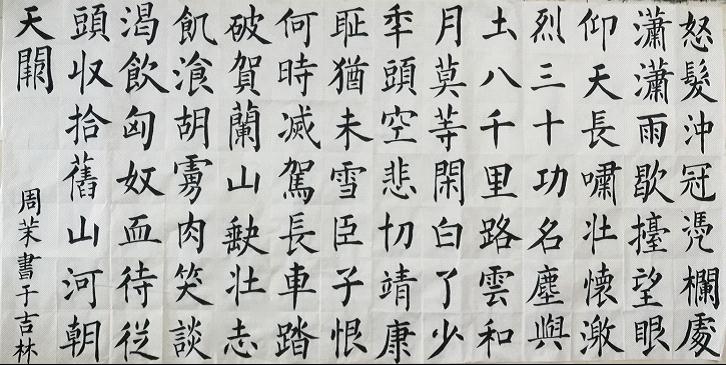 怒髮沖冠凴欄處
瀟瀟雨歇擡望眼
仰天長嘯壯懷激
烈三十功名塵與
土八千里路雲和
月莫等閑白了少
年頭空悲切靖康
耻猶未雪臣子恨
何時滅駕長車踏
破賀蘭山缺壯志
飢飡胡虜肉笑談
渴飲匈奴血待從
頭收拾舊山河朝
天闕
周茉書于吉林